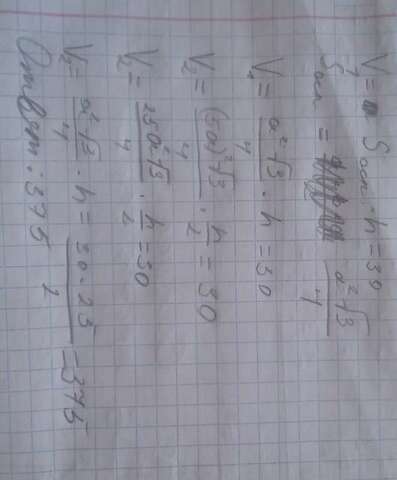 V = S осн · h = 30
S осн = a²√3/4
V₁ = a²√3/4 · h = 30
V₂ = (5a)²√3/4 · h/2 = 30
V₂ = 25a²√3/4 · h/2 = 30
V₂ = a²√3/4 · h = 30·25/2 = 375
Ответ: 375